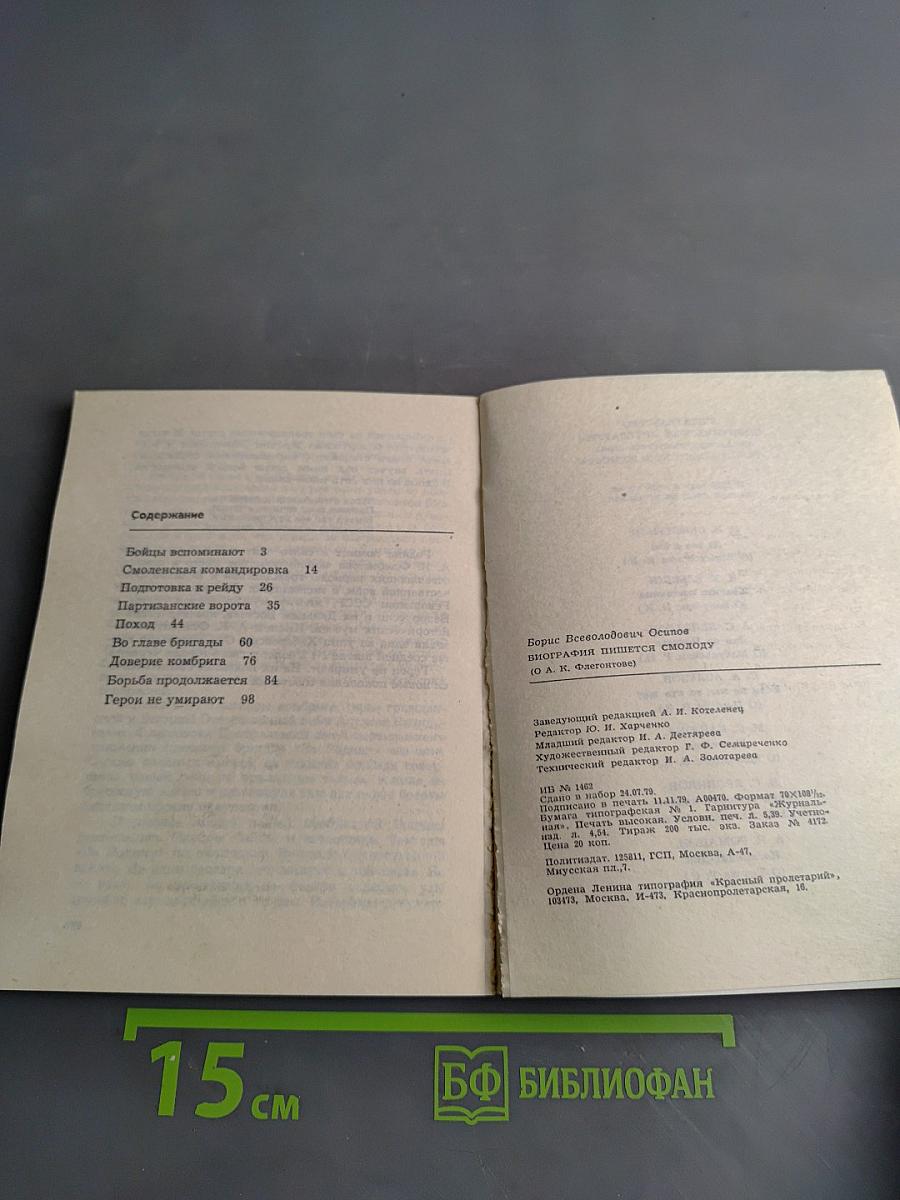 Содержание
Бойцы вспоминают 3
Смоленская командировка 14
Подготовка к рейду 26
Партизанские ворота 35
Поход 44
Во главе бригады 60
Доверие комбрига 76
Борьба продолжается 84
Герои не умирают 98
Борис Всеволодович Осипов
БИОГРАФИЯ ПИШЕТСЯ СМОЛОДУ
(О А. К. Флегонтове)
Заведующий редакцией А. И. Котеленец
Редактор Ю. И. Харченко
Младший редактор И. А. Дегтярева
Художественный редактор Г. Ф. Семиреченко
Технический редактор И. А. Золотарева
ИБ № 1462
Сдано в набор 24.07.79.
Подписано в печать 11.11.79. А00470. Формат 70×108¹/₃₂.
Бумага типографская № 1. Гарнитура «Журналь-
ная». Печать высокая. Условн. печ. л. 5,39. Учетно-
изд. л. 4,54. Тираж 200 тыс. экз. Заказ № 4172.
Цена 20 коп.
Политиздат. 125811, ГСП, Москва, А-47,
Миусская пл.,7.
Ордена Ленина типография «Красный пролетарий»,
103473, Москва, И-473, Краснопролетарская, 16.
15 см
БФ БИБЛИОФАН